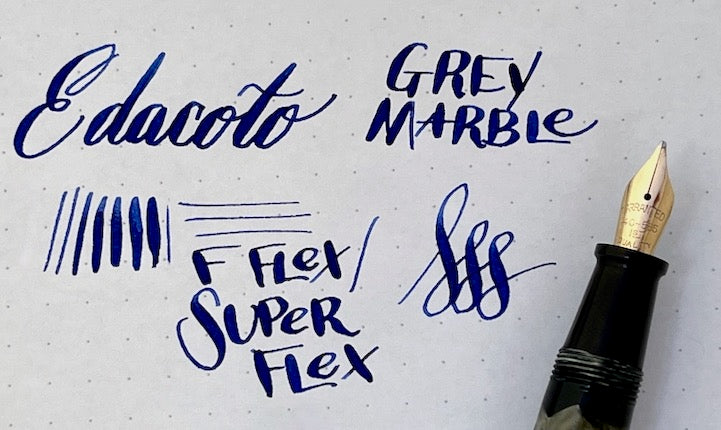 Edacoto
GREY
MARBLe
F FLeX/
SUPeR
FLeX
WARRANTED